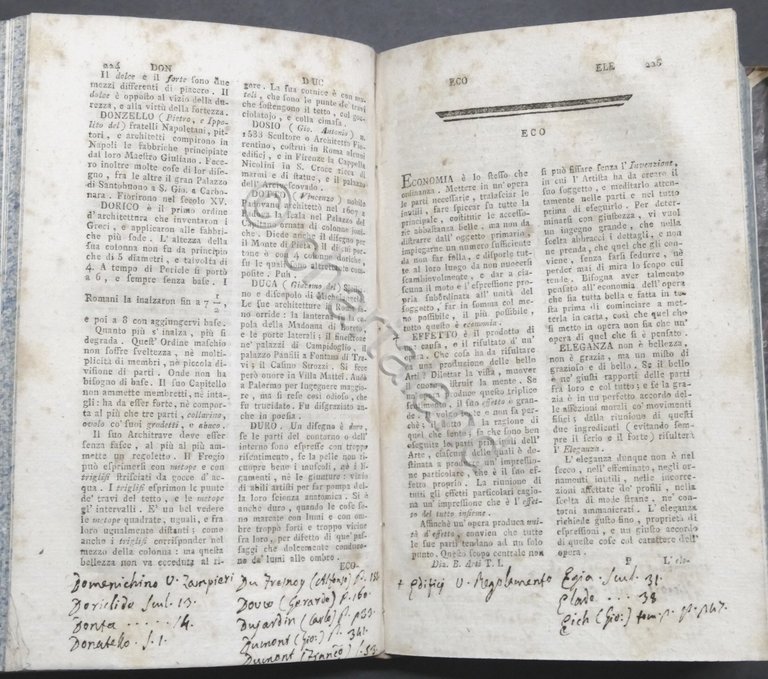 224 DON
Il dolce e il forte sono due
mezzi differenti di piacere. Il
dolce è opposto al vizio della du-
rezza, e alla virtù della fortezza.
DONZELLO (Pietro, e Ippo-
lito del) fratelli Napoletani, pit-
tori, e architetti compirono in
Napoli le fabbriche principiate
dal loro Maestro Giuliano. Fece-
ro inoltre molte cose di lor dise-
gno, fra le altre il gran Palazzo
di Santobuono a S. Gio. a Carbo-
nara. Fiorirono nel secolo XV.
DORICO è il primo ordine
d'architettura che inventaron i
Greci, e applicaron alle fabbri-
che più sode. L'altezza della
sua colonna non fu da principio
che di 5 diametri, e talvolta di
4. A tempo di Pericle si portò
a 6, e sempre senza base. I
Romani la inalzaron fin a 7 1/2,
e poi a 8 con aggiungervi base.
Quanto più s'inalza, più si
degrada. Quest'Ordine maschio
non soffre sveltezza, nè molti-
plicità di membri, nè piccola di-
visione di parti. Onde non ha
bisogno di base. Il suo Capitello
non ammette membretti, nè inta-
gli: ha da esser forte, nè compor-
ta al più che tre parti, collarino,
ovolo co' suoi gradetti, e abaco.
Il suo Architrave deve esser
senza fasce, al più al più am-
mette un regoletto. Il Fregio
può esprimersi con metope e con
triglifi striscianti da gocce d'ac-
qua. I triglifi esprimon le punte
de' travi del tetto, e le metope
gl'intervalli. E' un bel vedere
le metope quadrate, uguali, e fra
loro ugualmente distanti: come
anche i triglifi corrisponder nel
mezzo della colonna: ma questa
bellezza non va eccedura ai ri-
Domenichino V. Zampieri
Doriclido Scul. 13.
Donta ...... 14.
Donatello . S. 1.
DUC
gore. La sua cornice è con mu-
toli, che sono le punte de' travi
che sostengono il tetto, col goc-
ciolatojo, e colla cimasa.
DOSIO (Gio. Antonio) n.
1533 Scultore e Architetto Fio-
rentino, costruì in Roma alcuni
edifici, e in Firenze la Cappella
Nicolini in S. Croce ricca di
marmi e di statue, e il palazzo
dell'Arcivescovado.
DOTTI (Vincenzo) nobile
Padovano architettò nel 1607 a
la Scala nel Palazzo del
Capitano, ornata di colonne joni-
che. Diede anche il disegno per
il Monte di Pietà
con 4 colonne doriche,
su le quali le com-
posite. Pub.
DUCA (Giacomo del) Siciliano
e discepolo di Michelangelo.
Le sue architetture
orride: la lanterna
della Madonna di Loreto,
le porte laterali: il finestrone
ne' palazzi di Campidoglio,
palazzo Panfili a Fontana di Tre-
vi: i Casino Strozzi. Si fece
però onore in Villa Mattei. Andò
a Palermo per Ingegnere maggio-
re, ma si rese così odioso, che
fu trucidato. Fu disgraziato an-
che in poesia.
DURO. Un disegno è duro, se
le parti del contorno o dell'
interno sono espresse con troppo
risentimento, se la pelle non ri-
cuopre bene i muscoli, nè i li-
gamenti, nè le giunture: vizio
di abili artisti per far pompa del-
la loro scienza anatomica. Si è
anche duro, quando le cose so-
no marcate con lumi e con
ombre troppo forti e troppo vicine
fra loro, per difetto di que' pas-
saggi che dolcemente conduco-
no da' lumi alle ombre.
ECO-
Du Fresnoy (Alfonso) p. 132
Douw (Gerardo) p. 160.
Dujardin (Carlo) p. 233.
Dumont (Gio:) p. 341.
Dumont (Franco) p. 53.
ECO ELE 225
ECO
ECONOMIA è lo stesso che
ordinanza. Mettere in un'opera
le parti necessarie, tralasciar le
inutili, fare spiccar fra tutte la
principale, costituir le accesso-
rie abbastanza belle, ma non da
distrarre dall'oggetto primario,
impiegarne un numero sufficiente
da non far folla, e disporle tut-
te al loro luogo da non nuocersi
scambievolmente, e dar a cia-
scuna il moto e l'espressione pro-
pria subordinata all'unità del
soggetto, far in somma col me-
no possibile, il più possibile,
tutto questo è economia.
EFFETTO è il prodotto di
una causa, e il risultato d'un'
opera. Che cosa ha da risultare
da una produzione delle belle
Arti? Dilettar la vista, muover
il cuore, istruir la mente. Se
l'opera produce questo triplice
il suo effetto è grande.
che fanno su le
qui dell'
Arte, ciascuna delle quali è de-
stinata a produr un'impressio-
ne particolare, che è il suo ef-
fetto proprio. La riunione di
tutti gli effetti particolari cagio-
na un'impressione che è l'effet-
to del tutto insieme.
Affinchè un'opera produca uni-
tà d'effetto, convien che tutte
le sue parti tendano ad un solo
punto. Questo scopo centrale non
Diz. B. Arti T. I.
+ Edifizi V. Regolamento
si può fissare senza l'Invenzione,
in cui l'Artista ha da creare il
suo soggetto, e meditarlo atten-
tamente nelle parti e nel tutto
prima di eseguirlo. Per deter-
minarsi con giustezza, vi vuol
un ingegno grande, che nulla
scelta abbracci i dettagli, e non
ne prenda, che quel che gli con-
viene, senza farsi sedurre, nè
perder mai di mira lo scopo cui
tende. Bisogna aver talmente
pensato all'economia dell'opera
che sia tutta bella e fatta in te-
sta prima di cominciar a metter-
la in carta, così che quel che
si metta in opera non sia che un'
orma di quel che si è pensato.
ELEGANZA non è bellezza,
non è grazia, ma un misto di
grazioso e di bello. Se il bello
è ne' giusti rapporti delle parti
fra loro e col tutto; e se la gra-
zia è in un perfetto accordo del-
le affezioni morali co' movimenti
fisici; dalla riunione di questi
due ingredienti (evitando sem-
pre il serio e il forte) risulterà
l'Eleganza.
L'eleganza dunque non è nel
secco, nell'effeminato, negli or-
namenti inutili, nelle incorre-
zioni affettate de' profili, nella
scelta di mode strane, ne' con-
torni ammanierati. L'eleganza
richiede gusto fino, proprietà di
espressioni, e un giusto accordo
di queste cose col carattere dell'
opera.
P L'ele-
Egia Scul. 31.
Elade .... 38
Eich (Gio:) tom. p. p. 247.
© chartaleno